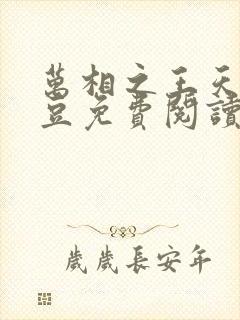 萬相之王天
豆免費閱讀
歲歲長安年